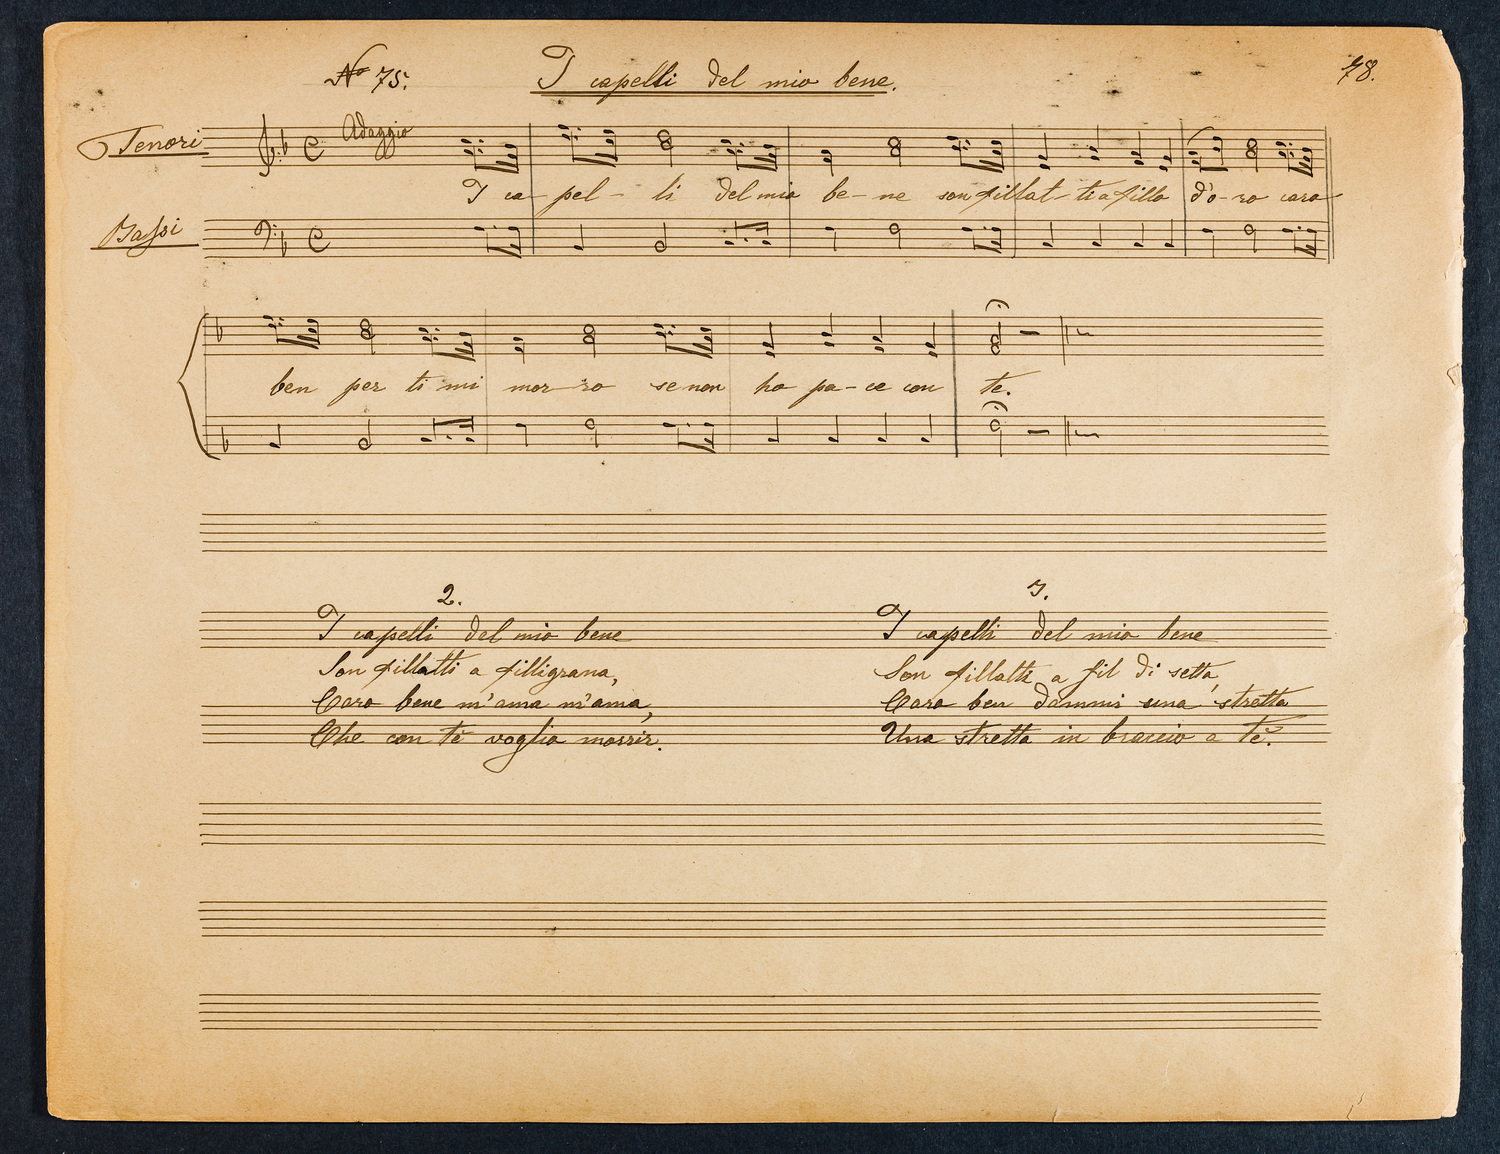 No 75.
I capelli del mio bene.
78.
Tenori
Adaggio
I ca- pel- li del mio be- ne son fillat- ti a fillo d'o- ro caro
Bassi
ben per ti mi mor- ro se non ho pa- ce con te.
2.
I capelli del mio bene
Son fillatti a filligrana,
Caro bene m'ama m'ama,
Che con tè voglio morrir.
3.
I capelli del mio bene
Son fillatti a fil di setta,
Caro ben dammi una stretta
Una stretta in braccio a tè.